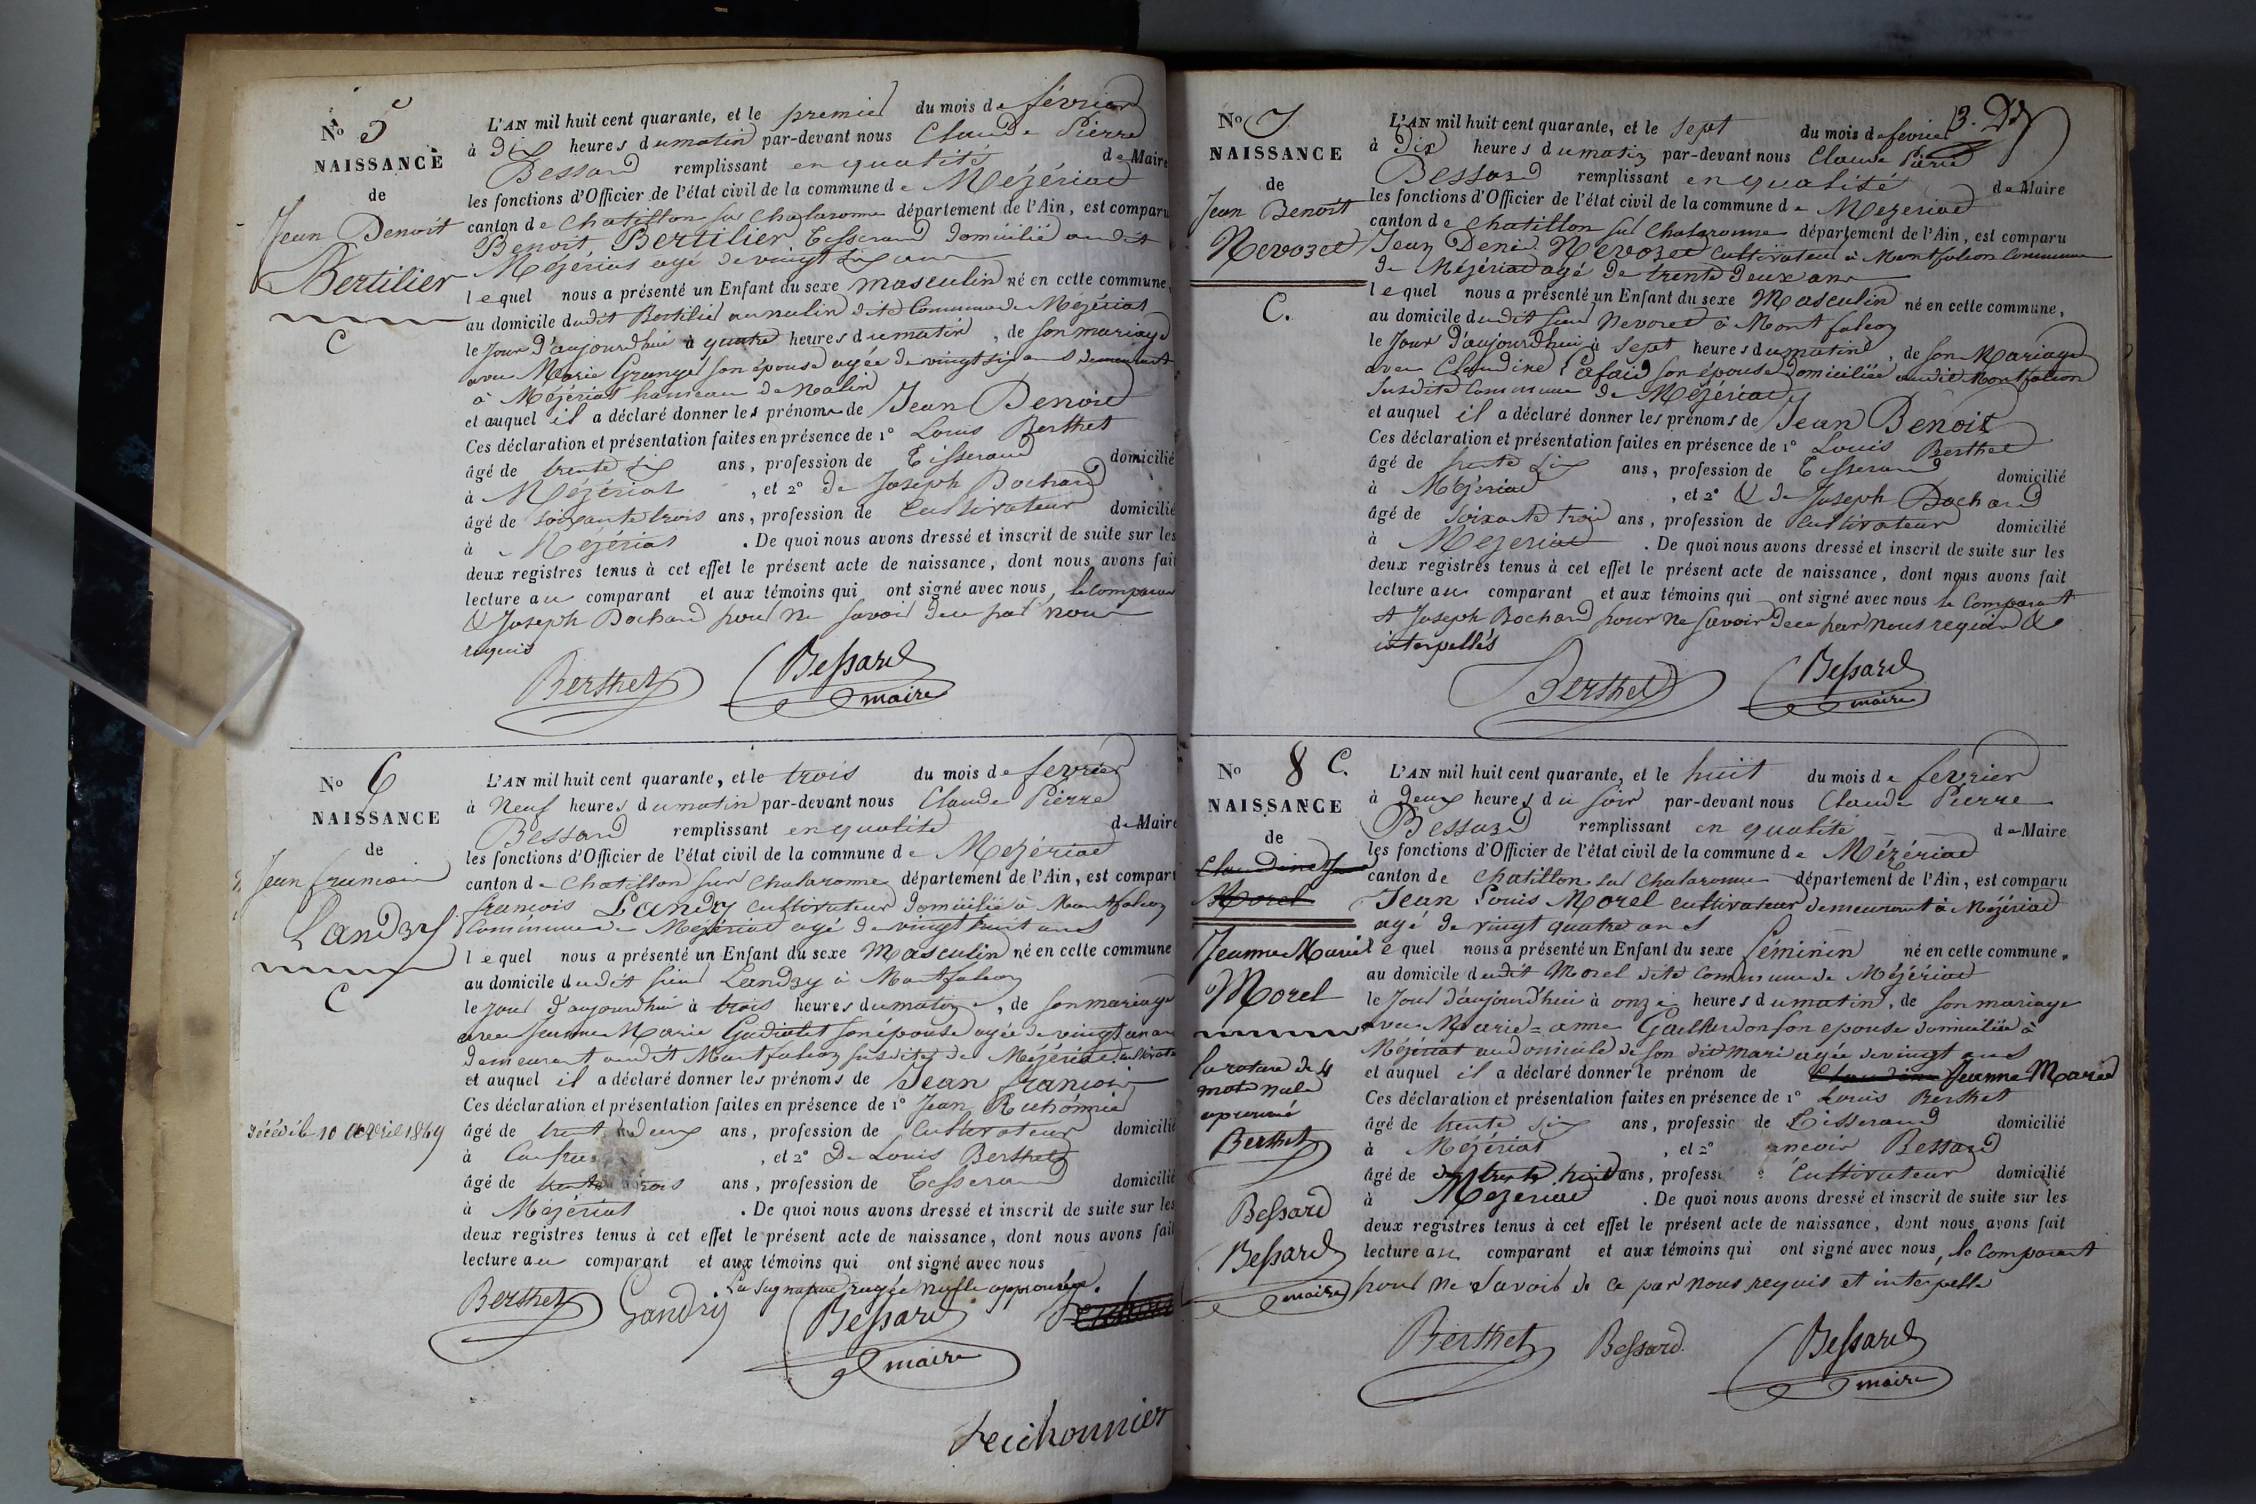 No 5
NAISSANCE
de
Jean Benoit
Bertilier
C
L'AN mil huit cent quarante, et le premier du mois de février
à Dix heures du matin par-devant nous Claude Pierre
Bessard remplissant en qualité de Maire
les fonctions d'Officier de l'état civil de la commune de Mézériat
canton de Chatillon sur Chalaronne département de l'Ain, est comparu
Benoit Bertilier Tisserand domicilié audit
Mézériat agé de vingt six ans
lequel nous a présenté un Enfant du sexe masculin né en cette commune,
au domicile dudit Bertilier dite Commune de Mézériat
le jour d'aujourdhui à quatre heures du matin, de son mariage
avec Marie Grangé son épouse agée de vingt six ans demeurant
à Mézériat hameau de
et auquel il a déclaré donner les prénoms de Jean Benoit
Ces déclaration et présentation faites en présence de 1º Louis Berthet
âgé de trente six ans, profession de Tisserand domicilié
à Mézériat, et 2º de Joseph Bochard
âgé de soixante trois ans, profession de Cultivateur domicilié
à Mézériat. De quoi nous avons dressé et inscrit de suite sur les
deux registres tenus à cet effet le présent acte de naissance, dont nous avons fait
lecture au comparant et aux témoins qui ont signé avec nous, le comparant
& Joseph Bochard pour ne savoir de ce par nous
requis
Berthet Bessard
maire
No 6
NAISSANCE
de
Jean francois
Landry
C
décédé le 10 avril 1849
L'AN mil huit cent quarante, et le trois du mois de février
à Neuf heures du matin par-devant nous Claude Pierre
Bessard remplissant en qualité de Maire
les fonctions d'Officier de l'état civil de la commune de Mézériat
canton de Chatillon sur Chalaronne département de l'Ain, est comparu
francois Landry cultivateur domicilié à Montfalcon
Commune de Mézériat agé de vingt huit ans
lequel nous a présenté un Enfant du sexe Masculin né en cette commune
au domicile dudit sieur Landry à Montfalcon
le jour d'aujourdhui à trois heures du matin, de son mariage
avec Jeanne Marie son épouse agée de vingt un an
demeurant audit Montfalcon susdite de Mézériat
et auquel il a déclaré donner les prénoms de Jean francois
Ces déclaration et présentation faites en présence de 1º Jean
âgé de deux ans, profession de Cultivateur domicilié
à, et 2º De Louis Berthet
âgé de ans, profession de Tisserand domicilié
à Mézériat. De quoi nous avons dressé et inscrit de suite sur les
deux registres tenus à cet effet le présent acte de naissance, dont nous avons fait
lecture au comparant et aux témoins qui ont signé avec nous
La signature rayée nulle approuvée.
Berthet Landry Bessard
maire
No 7
NAISSANCE
de
Jean Benoit
Nevoret
C.
3.
L'AN mil huit cent quarante, et le sept du mois de février
à Dix heures du matin par-devant nous Claude Pierre
Bessard remplissant en qualité de Maire
les fonctions d'Officier de l'état civil de la commune de Mezeriat
canton de Chatillon sur Chalaronne département de l'Ain, est comparu
Jean Denis Nevoret Cultivateur à Montfalcon Commune
de Mézériat agé de trente deux ans
lequel nous a présenté un Enfant du sexe Masculin né en cette commune,
au domicile dudit sieur Nevoret à Montfalcon
le Jour d'aujourdhui à sept heures du matin, de son Mariage
avec Claudine son épouse domiciliée audit Montfalcon
susdite Commune de Mézériat
et auquel il a déclaré donner les prénoms de Jean Benoit
Ces déclaration et présentation faites en présence de 1º Louis Berthet
âgé de trente six ans, profession de Tisserand domicilié
à Mézériat, et 2º & de Joseph Bochard
âgé de soixante trois ans, profession de Cultivateur domicilié
à Mezeriat. De quoi nous avons dressé et inscrit de suite sur les
deux registres tenus à cet effet le présent acte de naissance, dont nous avons fait
lecture au comparant et aux témoins qui ont signé avec nous le Comparant
et Joseph Bochard pour ne savoir de ce par nous requis &
interpellés
Berthet Bessard
maire
No 8 C.
NAISSANCE
de
Morel
Jeanne Marie
Morel
la rature de 4
mots nule
approuvé
Berthet
Bessard
Bessard
maire
L'AN mil huit cent quarante, et le huit du mois de février
à deux heures du soir par-devant nous Claude Pierre
Bessard remplissant en qualité de Maire
les fonctions d'Officier de l'état civil de la commune de Mézériat
canton de Chatillon sur Chalaronne département de l'Ain, est comparu
Jean Louis Morel cultivateur demeurant à Mézériat
agé de vingt quatre ans
lequel nous a présenté un Enfant du sexe féminin né en cette commune,
au domicile dudit Morel dite commune de Mézériat
le Jour d'aujourd'hui à onze heures du matin, de son mariage
avec Marie=anne son épouse domiciliée à
Mézériat au domicile de son dit mari agée de vingt ans
et auquel il a déclaré donner le prénom de Claudine Jeanne Marie
Ces déclaration et présentation faites en présence de 1º Louis Berthet
âgé de trente six ans, profession de Tisserand domicilié
à Mézériat, et 2º ancois Bessard
âgé de trente huit ans, profession Cultivateur domicilié
à Mezeriat. De quoi nous avons dressé et inscrit de suite sur les
deux registres tenus à cet effet le présent acte de naissance, dont nous avons fait
lecture au comparant et aux témoins qui ont signé avec nous, le Comparant
pour ne Savoir de ce par nous requis et interpellé
Berthet Bessard. Bessard
maire